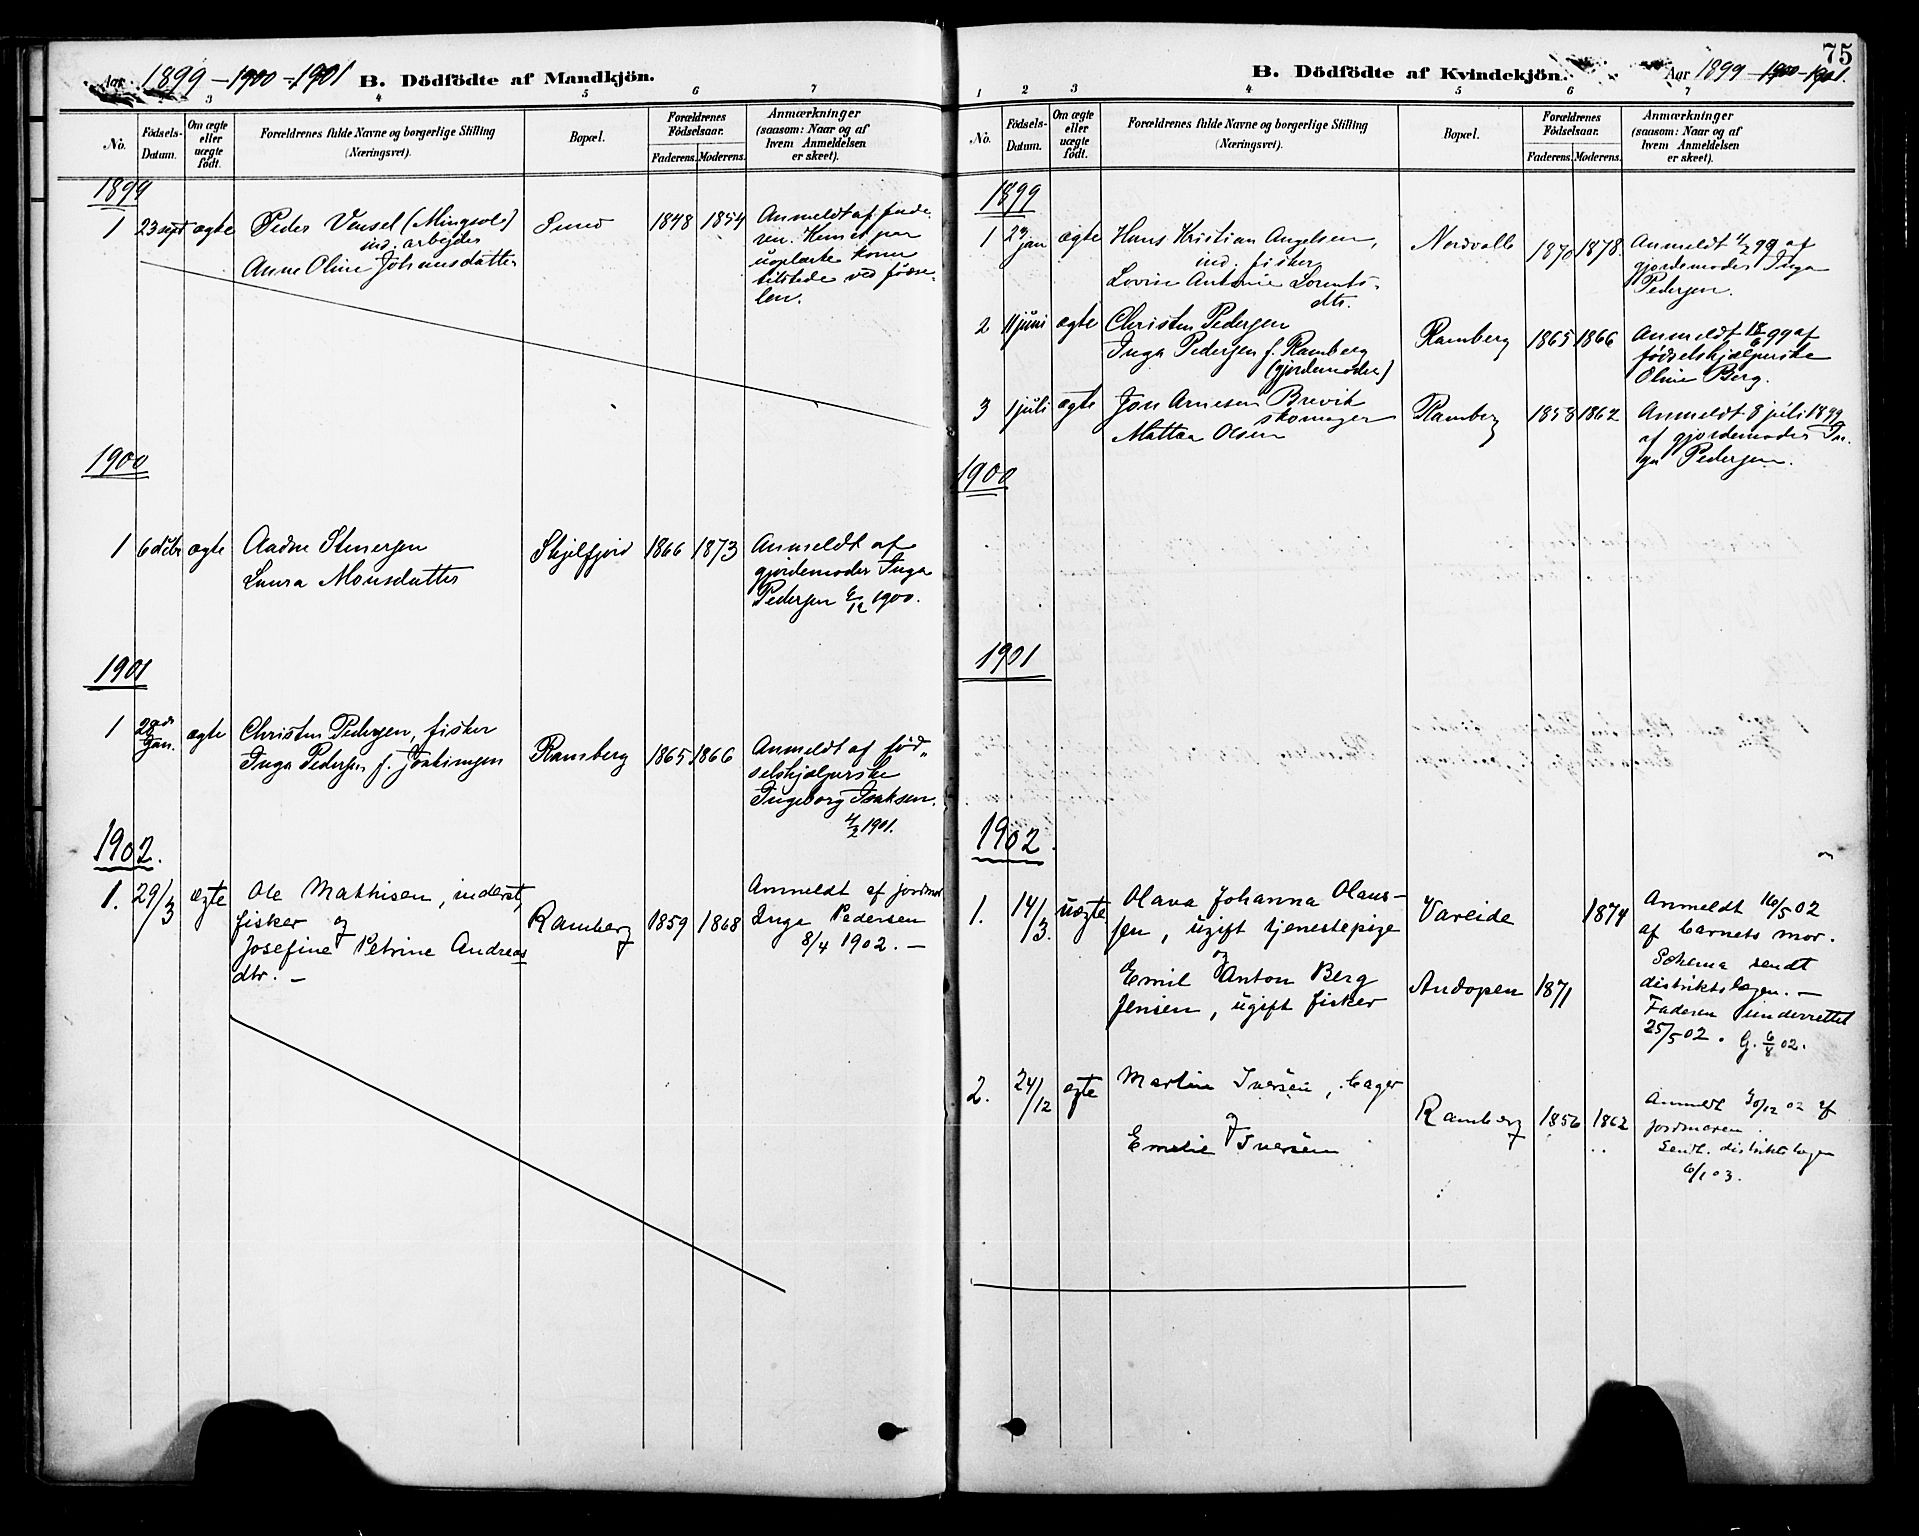 Aar 1899 - 1900 - 1901 B. Dödfödte af Mandkjön.
3 4 5 6 7
No. Födsels-Datum. Om ægte eller uægte födt. Forældrenes fulde Navne og borgerlige Stilling (Næringsvei). Bopæl. Forældrenes Födselsaar. Faderens. Moderens. Anmærkninger (saasom: Naar og af hvem Anmeldelsen er skeet).
1899
1 23 sept ægte Peder Vensel (Mingsvole) Sund 1848 1854 Anmeldt af fade-
ind. arbejder ren. Kun et par
Anne Oline Johannesdatter uoplærte koner
tilstede ved fødse-
len.
1900
1 6 dcbr ægte Aadne Stenersen Skjelfjord 1866 1873 Anmeldt af
Laura Monsdatter gjordemoder Inga
Pedersen 6/12 1900.
1901
1 28de Jan. ægte Christen Pedersen, fisker
Inga Pedersen f. Joakimsen Ramberg 1865 1866 Anmeldt af fød-
selshjælperske
Ingeborg Isaksen.
4/2 1901.
1902.
1. 29/3 ægte Ole Mathisen, inderst, Anmeldt af jordmor
fisker og Ramberg 1859 1868 Inga Pedersen
Josefine Petrine Andreas 8/4 1902. —
dtr. —
75
B. Dödfödte af Kvindekjön. Aar 1899 - 1900 - 1901.
1 2 3 4 5 6 7
No. Födsels-Datum. Om ægte eller uægte födt. Forældrenes fulde Navne og borgerlige Stilling (Næringsvei). Bopæl. Forældrenes Födselsaar. Faderens. Moderens. Anmærkninger (saasom: Naar og af hvem Anmeldelsen er skeet).
1899
1 jan ægte Hans Kristian Angelsen, Nordvolle 1870 1878 Anmeldt 99 af
ind. fisker gjordemoder Inga
Lovise Antonie Lorents- Pedersen.
dtr.
2 11 juni ægte Christen Pedersen Ramberg 1865 1866 Anmeldt 18/6 99 af
Inga Pedersen f. Ramberg fødselshjælperske
(gjordemoder) Oline Berg.
3 1 juli ægte Jon Arnesen Brevik Ramberg 1858 1862 Anmeldt 8 juli 1899
skomager af gjordemoder In-
Mattea Olsen ga Pedersen.
1900
1901
1902.
1. 14/3. uægte Olava Johanna Olaus- Vareide 1874 Anmeldt 16/5 02
sen, ugift tjenestepige af barnets mor.
og Schema sendt
Emil Anton Berg Andopen 1871 distriktslægen. —
Jensen, ugift fisker Faderen underrettet
25/5 02. G. 6/8 02.
2. 24/12 ægte Martin Iversen, bager Anmeldt 30/12 02 af
og Ramberg 1856 1862 jordmoren.
Emelie Iversen Sendt distriktslægen
6/1 03.